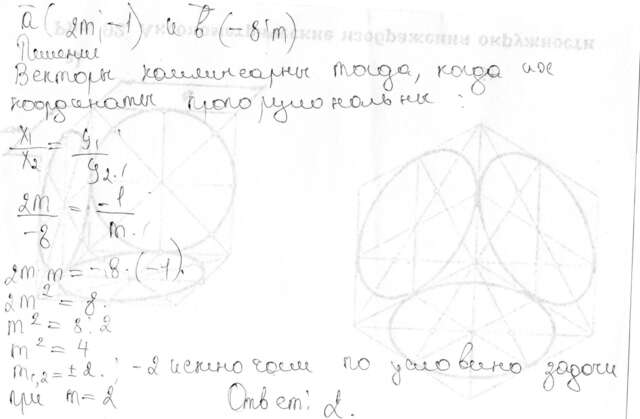 a⃗ (2m; -1) и b⃗ (-8; m)
Решение
Векторы коллинеарны тогда, когда их
координаты пропорциональны:
x₁/x₂ = y₁/y₂
2m/-8 = -1/m
2m·m = -8·(-1)
2m² = 8
m² = 8:2
m² = 4
m₁,₂ = ±2; -2 исключаем по условию задачи
при m = 2 Ответ: 2.